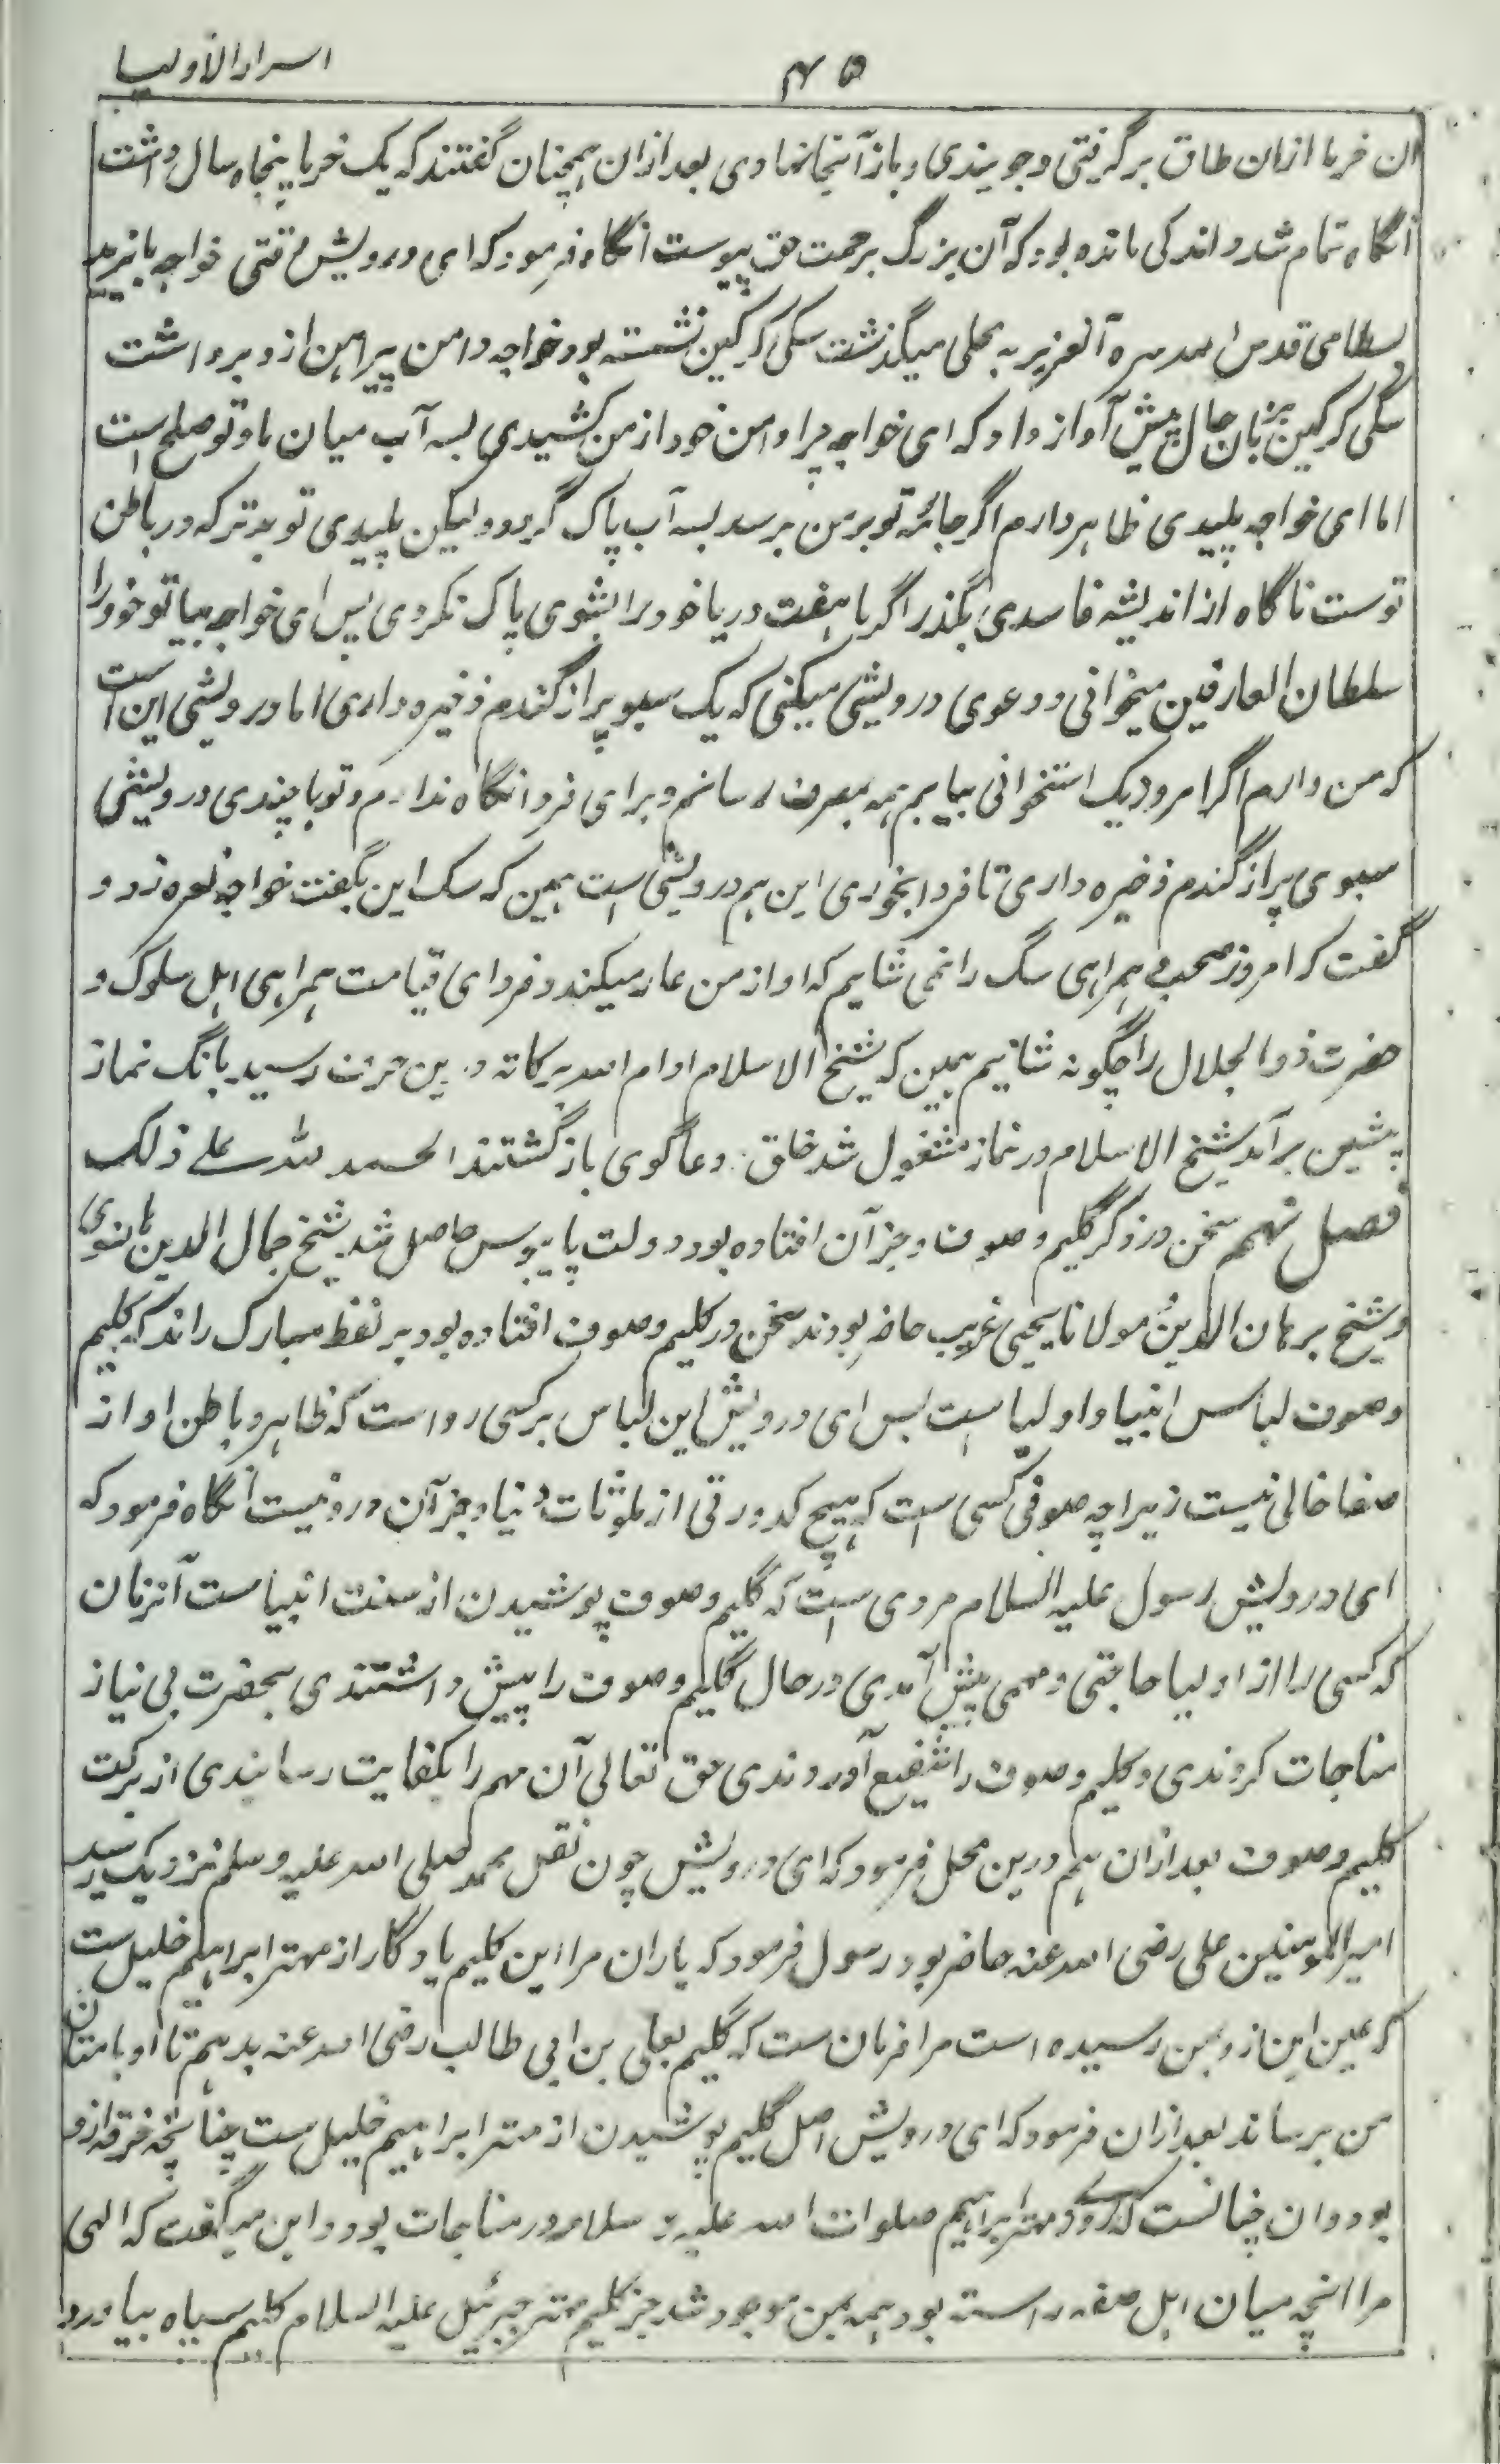 اسرار الاولیا
۴۵
آن خرما ازان طاق برگرفتی و جوبیندی و باز آنجا نهادی بعد ازان همچنان گفتند که یک خرما پنجاه سال داشت
آنگاه تمام شد و اندکی مانده بود که آن بزرگ برحمت حق پیوست آنگاه فرمود که ای درویش وقتی خواجه بایزید
بسطامی قدس الله سره العزیز به محلی میگذشت سگی گرگین نشسته بود خواجه دامن پیراهن ازو برداشت
سگی گرگین بزبان حال پیش آواز داد که ای خواجه چرا دامن خود از من کشیدی بسه آب میان ما و تو صلح است
اما ای خواجه پلیدی ظاهر دارم اگر جائه تو بر من برسد بسه آب پاک گردد ولیکن پلیدی تو بدتر که در باطن
توست ناگاه از اندیشه فاسدی بگذر اگر با هفت دریا خود را بشوی پاک نگردی پس ای خواجه بیا تو خود را
سلطان العارفین میخوانی و دعوی درویشی میکنی که یک سبو پر از گندم ذخیره داری اما درویشی این است
که من دارم اگر امروز یک استخوانی بیابم همه بصرف رسانم و برای فردا نگاه ندارم و تو با چندی درویشی
سبوی پر از گندم ذخیره داری تا فردا بخوری این هم درویشی است همین که سگ این بگفت خواجه نعره زد و
گفت که امروز صحبت همراهی سگ را نمی شایم که او از من عار میکند و فردای قیامت همراهی اهل سلوک و
حضرت ذوالجلال را چگونه شائیم همین که شیخ الاسلام ادام الله برکاته درین حرف رسید بانگ نماز
پیشین برآمد شیخ الاسلام در نماز مشغول شد خلق و دعاگوی بازگشتند الحمد لله علی ذلک
فصل نهم سخن در ذکر گلیم و صوف و جز آن افتاده بود دولت پایبوس حاصل شد شیخ جمال الدین هانسوی
و شیخ برهان الدین مولانا یحیی غریب حاضر بودند سخن در گلیم و صوف افتاده بود بر لفظ مبارک راند که گلیم
و صوف لباس انبیا و اولیا است بس ای درویش این لباس بر کسی رواست که ظاهر و باطن او از
صفا خالی نیست زیراچه صوفی کسی است که هیچ کدورتی از ملوثات دنیا و جز آن درو نیست آنگاه فرمود که
ای درویش رسول علیه السلام مروی است که گلیم و صوف پوشیدن از سنت انبیاست آنزمان
که کسی را از اولیا حاجتی و مهمی پیش آمدی در حال گلیم و صوف را پیش داشتندی بحضرت بی نیاز
مناجات کردندی و گلیم و صوف را شفیع آوردندی حق تعالی آن مهم را بکفایت رسانیدی از برکت
گلیم و صوف بعد ازان هم درین محل فرمود که ای درویش چون نقل محمد صلی الله علیه و سلم نزدیک رسید
امیر المومنین علی رضی الله عنه حاضر بود رسول فرمود که یاران مرا این گلیم یادگار از مهتر ابراهیم خلیل ست
که عین این ازو بمن رسیده است مرا فرمان ست که گلیم بعلی بن ابی طالب رضی الله عنه بدهم تا او بامتان
من برساند بعد ازان فرمود که ای درویش اصل گلیم پوشیدن از مهتر ابراهیم خلیل ست چنانچه خرقه ازو
بود و آن چنانست که روزی مهتر ابراهیم صلوات الله علیه و سلامه در مناجات بود و این میگفت که الهی
مرا انچه میان اهل صفه راسته بود همه بمن موجود شد جز گلیم مهتر جبرئیل علیه السلام گلیم سیاه بیاورد